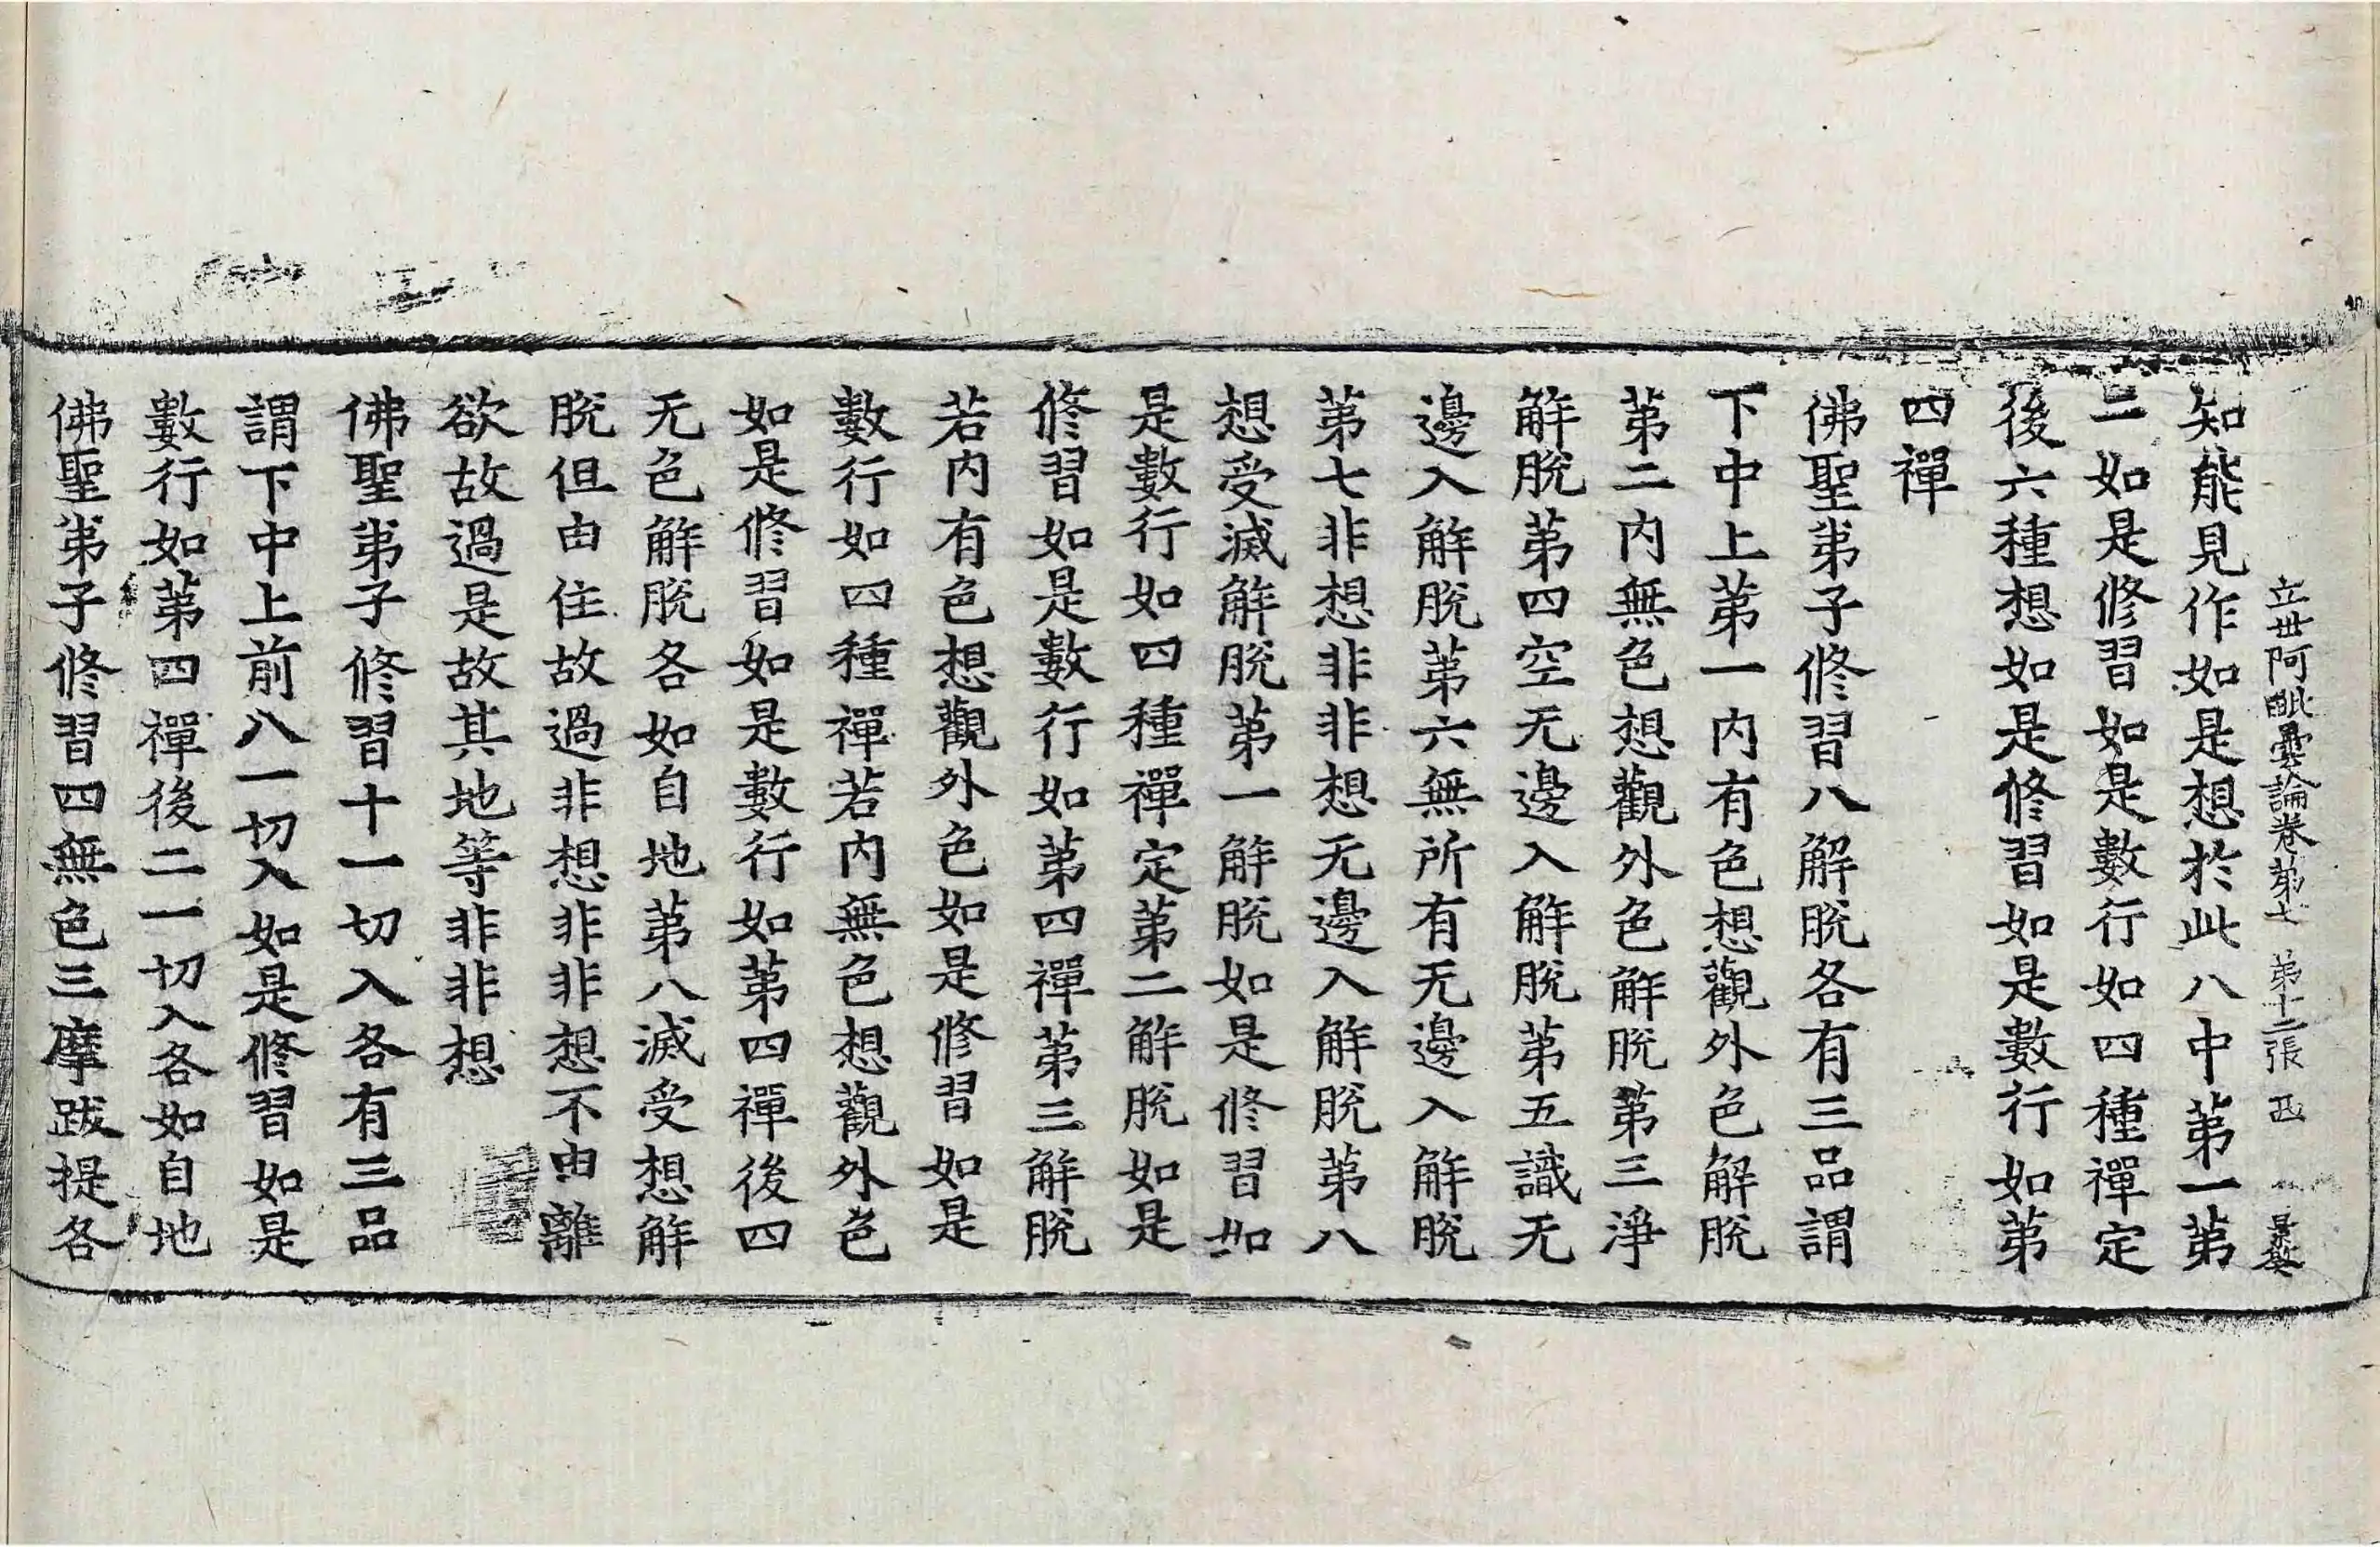 立世阿毗曇論卷第七 第十二張 匹 景敖
知能見作如是想於此八中第一第
二如是修習如是數行如四種禪定
後六種想如是修習如是數行如第
四禪
佛聖弟子修習八解脫各有三品謂
下中上第一內有色想觀外色解脫
第二內無色想觀外色解脫第三淨
解脫第四空无邊入解脫第五識无
邊入解脫第六無所有无邊入解脫
第七非想非非想无邊入解脫第八
想受滅解脫第一解脫如是修習如
是數行如四種禪定第二解脫如是
修習如是數行如第四禪第三解脫
若內有色想觀外色如是修習如是
數行如四種禪若內無色想觀外色
如是修習如是數行如第四禪後四
无色解脫各如自地第八滅受想解
脫但由住故過非想非非想不由離
欲故過是故其地等非非想
佛聖弟子修習十一切入各有三品
謂下中上前八一切入如是修習如是
數行如第四禪後二一切入各如自地
佛聖弟子修習四無色三摩跋提各